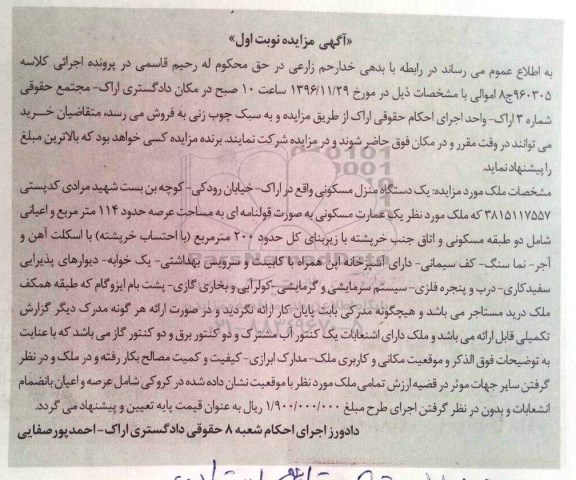 «آگهی مزایده نوبت اول»
به اطلاع عموم می رساند در رابطه با بدهی خدارحم زارعی در حق محکوم له رحیم قاسمی در پرونده اجرائی کلاسه
۹۶۰۳۰۵ج۸ اموالی با مشخصات ذیل در مورخ ۱۳۹۶/۱۱/۲۹ ساعت ۱۰ صبح در مکان دادگستری اراک- مجتمع حقوقی
شماره ۲ اراک- واحد اجرای احکام حقوقی اراک از طریق مزایده و به سبک چوب زنی به فروش می رسد، متقاضیان خرید
می توانند در وقت مقرر و در مکان فوق حاضر شوند و در مزایده شرکت نمایند. برنده مزایده کسی خواهد بود که بالاترین مبلغ
را پیشنهاد نماید.
مشخصات ملک مورد مزایده: یک دستگاه منزل مسکونی واقع در اراک- خیابان رودکی- کوچه بن بست شهید مرادی کدپستی
۳۸۱۵۱۱۷۵۵۷ که ملک مورد نظر یک عمارت مسکونی به صورت قولنامه ای به مساحت عرصه حدود ۱۱۴ متر مربع و اعیانی
شامل دو طبقه مسکونی و اتاق جنب خرپشته با زیربنای کل حدود ۲۰۰ مترمربع (با احتساب خرپشته) با اسکلت آهن و
آجر- نما سنگ- کف سیمانی- دارای آشپزخانه اپن همراه با کابینت و سرویس بهداشتی- یک خوابه- دیوارهای پذیرایی
سفیدکاری- درب و پنجره فلزی- سیستم سرمایشی و گرمایشی- کولرآبی و بخاری گازی- پشت بام ایزوگام که طبقه همکف
ملک درید مستاجر می باشد و هیچگونه مدرکی بابت پایان کار ارائه نگردید و در صورت ارائه هر گونه مدرک دیگر گزارش
تکمیلی قابل ارائه می باشد و ملک دارای اشنعابات یک کنتور آب مشترک و دو کنتور برق و دو کنتور گاز می باشد که با عنایت
به توضیحات فوق الذکر و موقعیت مکانی و کاربری ملک- مدارک ابرازی- کیفیت و کمیت مصالح بکار رفته و در ملک و در نظر
گرفتن سایر جهات موثر در قضیه ارزش تمامی ملک مورد نظر با موقعیت نشان داده شده در کروکی شامل عرصه و اعیان بانضمام
انشعابات و بدون در نظر گرفتن اجرای طرح مبلغ ۱/۹۰۰/۰۰۰/۰۰۰ ریال به عنوان قیمت پایه تعیین و پیشنهاد می گردد.
دادورز اجرای احکام شعبه ۸ حقوقی دادگستری اراک- احمد پورصفایی